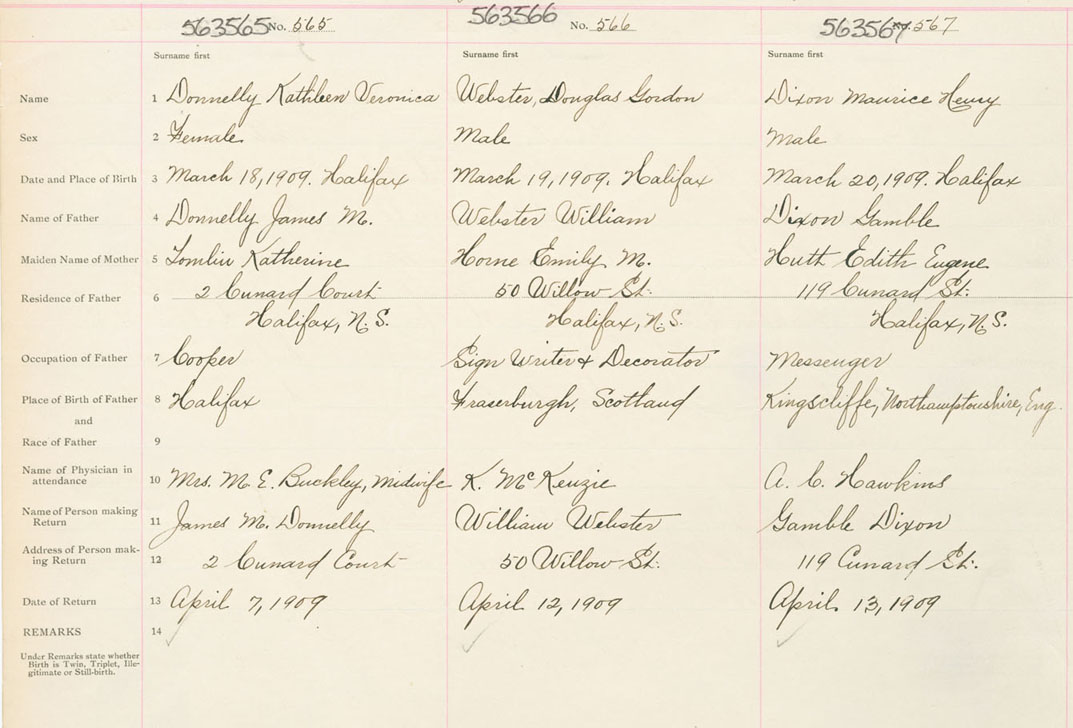 563565 No. 565 563566 No. 566 563567 No. 567
Surname first Surname first Surname first
Name 1 Donnelly Kathleen Veronica Webster, Douglas Gordon Dixon Maurice Henry
Sex 2 Female Male Male
Date and Place of Birth 3 March 18, 1909. Halifax March 19, 1909. Halifax March 20, 1909. Halifax
Name of Father 4 Donnelly James M. Webster William Dixon Gamble
Maiden Name of Mother 5 Tomlin Katherine Horne Emily M. Huth Edith Eugene
Residence of Father 6 2 Cunard Court 50 Willow St: 119 Cunard St:
Halifax, N.S. Halifax, N.S. Halifax, N.S.
Occupation of Father 7 Cooper Sign Writer & Decorator Messenger
Place of Birth of Father 8 Halifax Fraserburgh, Scotland Kingscliffe, Northamptonshire, Eng.
and
Race of Father 9
Name of Physician in
attendance 10 Mrs. M. E. Buckley, midwife K. McKenzie A. C. Hawkins
Name of Person making
Return 11 James M. Donnelly William Webster Gamble Dixon
Address of Person mak-
ing Return 12 2 Cunard Court 50 Willow St: 119 Cunard St:
Date of Return 13 April 7, 1909 April 12, 1909 April 13, 1909
REMARKS 14
Under Remarks state whether
Birth is Twin, Triplet, Ille-
gitimate or Still-birth.